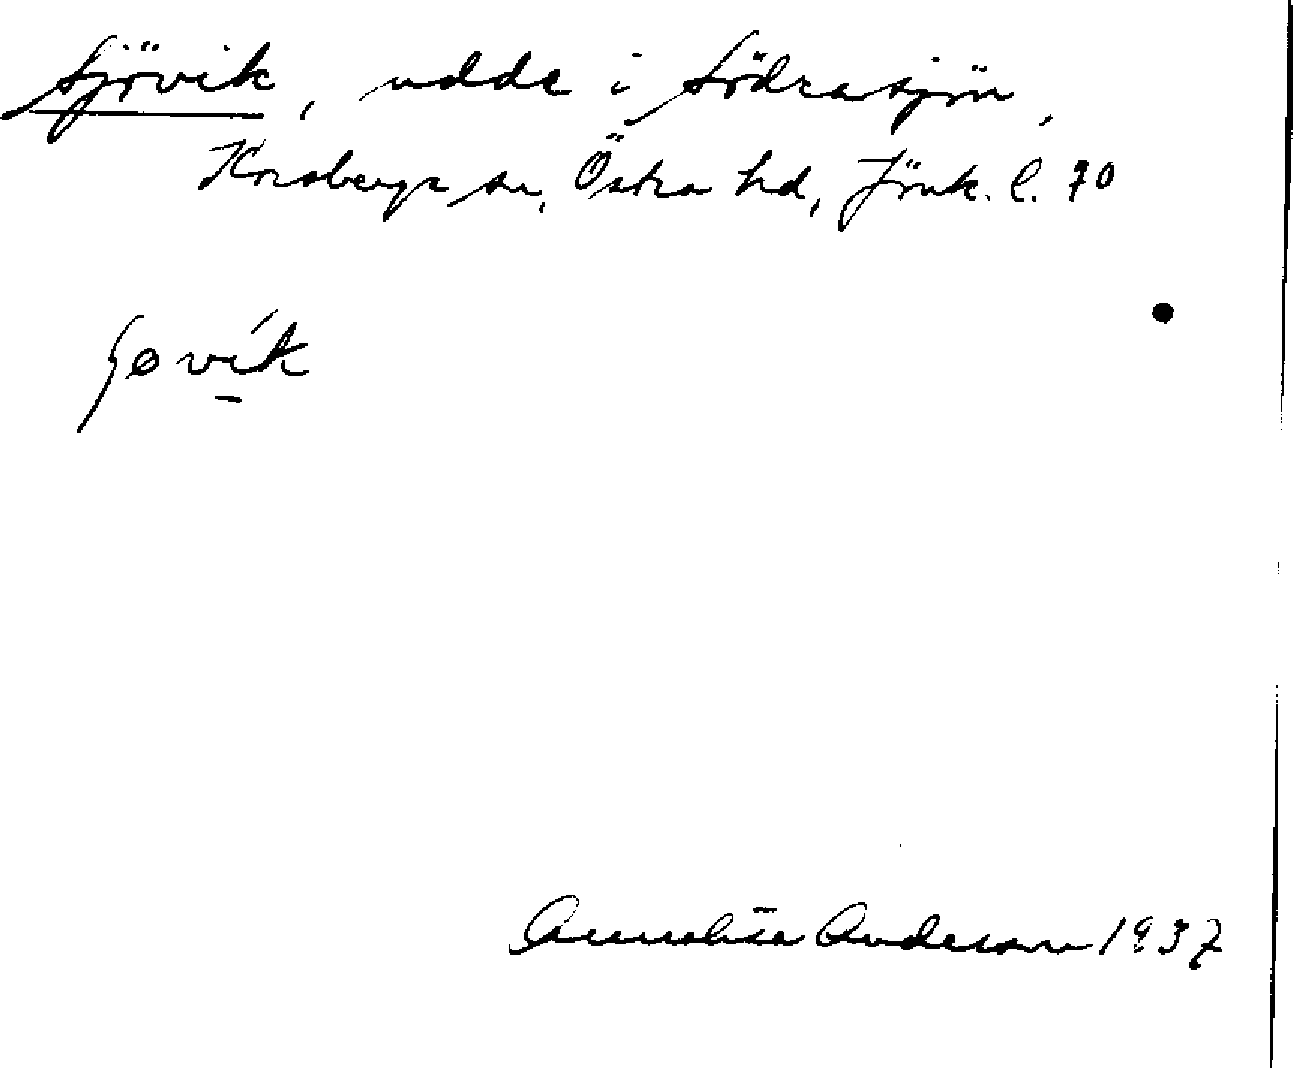 Sjövik, udde i Södrasjön,
Korsberga sn, Östra hd, Jönk. l. 70
ʃøvik
Annalisa Anderson 1937